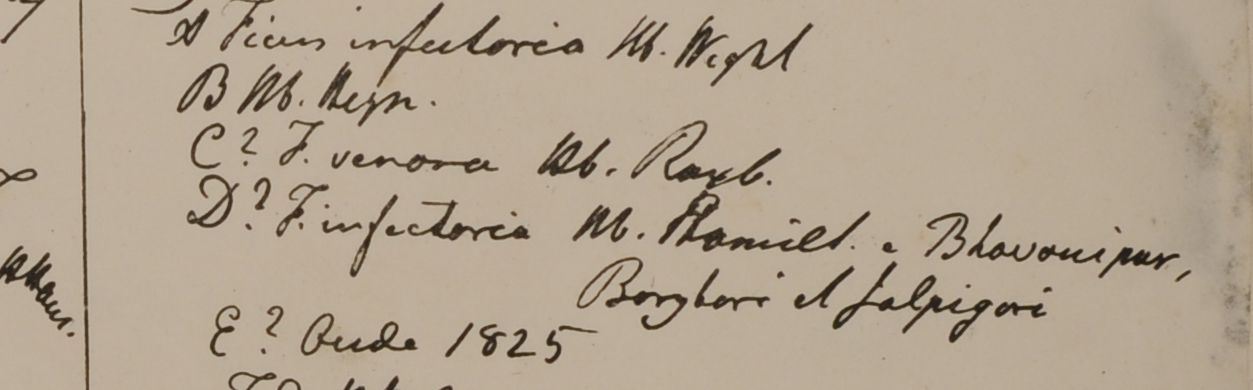 A Ficus infectoria Hb. Wight
B Hb. Heyn.
C? F. venosa Hb. Roxb.
D? F. infectoria Hb. Hamilt. e Bhavanipur,
Borghari et Jalpigori
E? Oude 1825